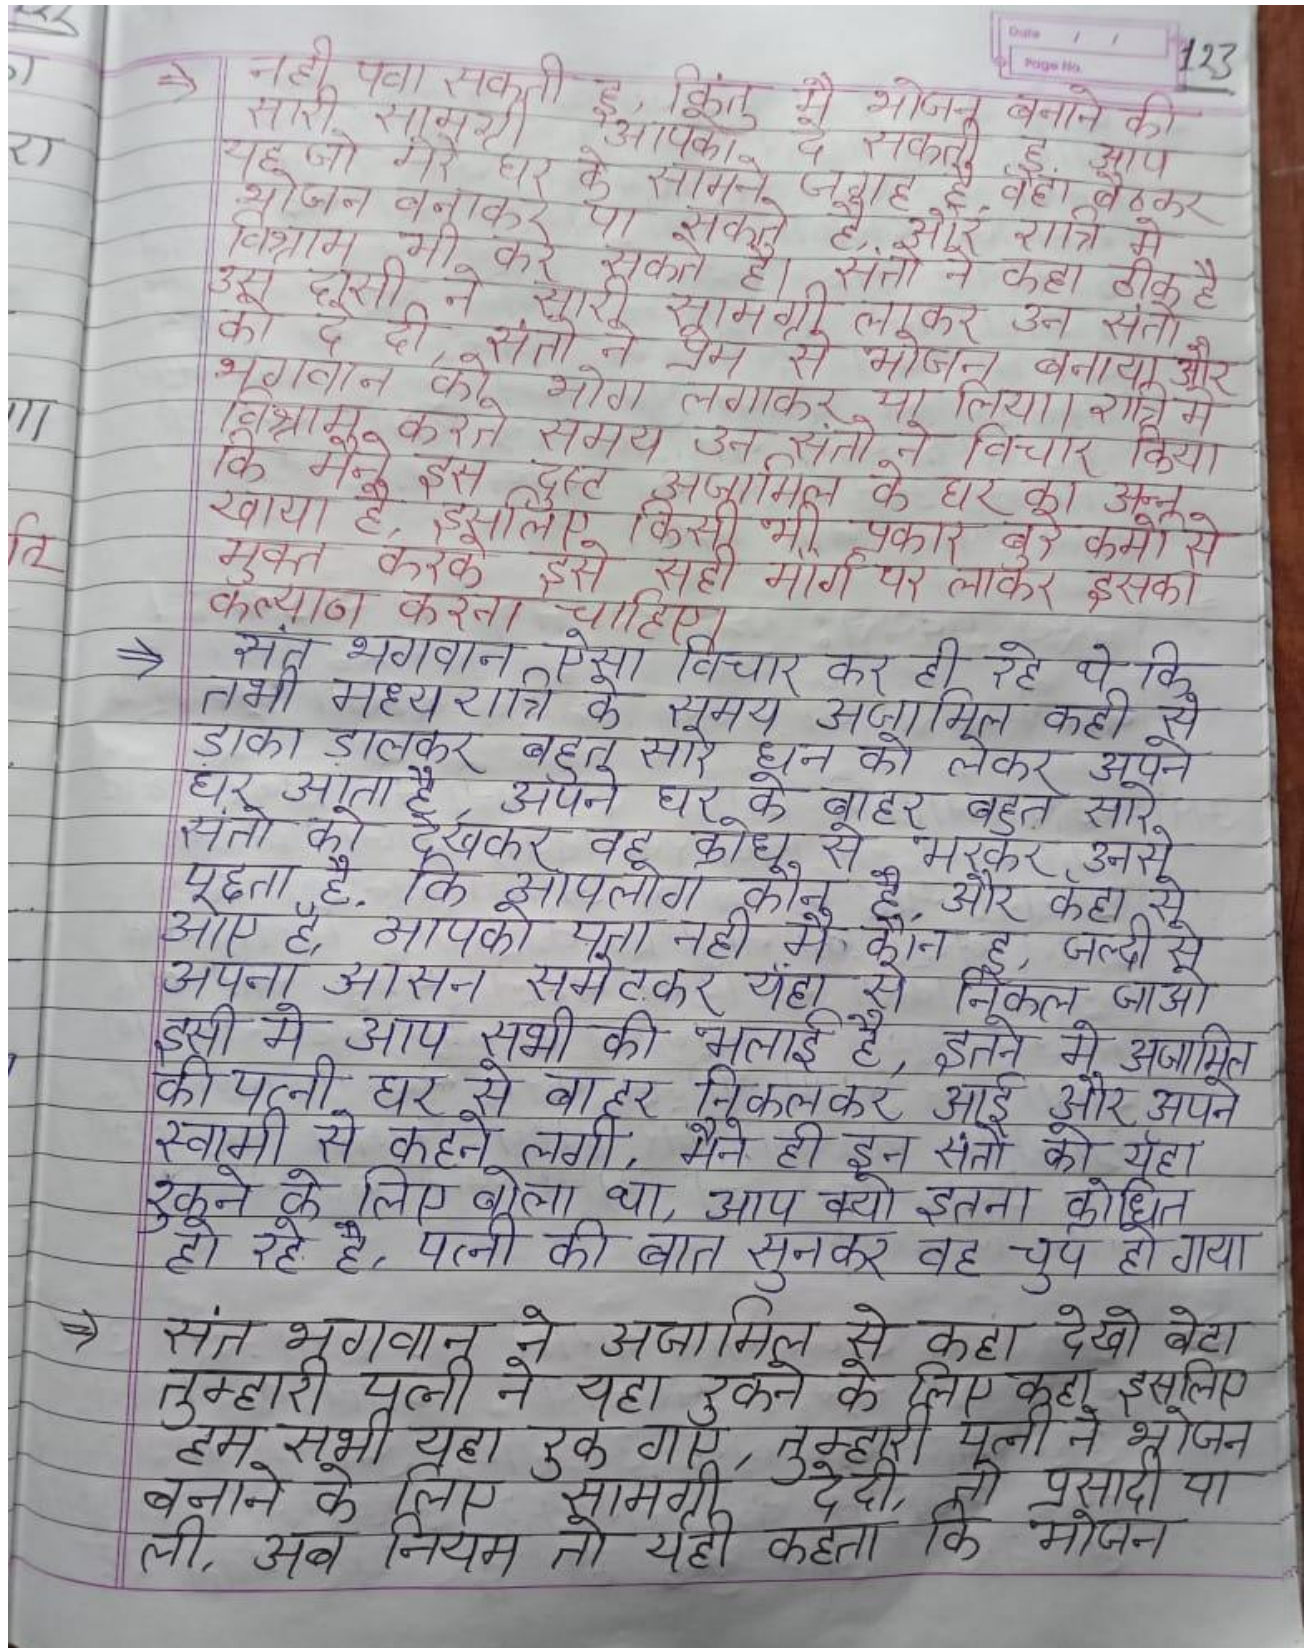 Date / /
Page No.
123
⇒ नही पवा सकती हू, किंतु मै भोजन बनाने की
सारी सामग्री आपको दे सकती हू आप
यह जो मेरे घर के सामने जगह है, वहां बैठकर
भोजन बनाकर पा सकते है, और रात्रि मे
विश्राम भी कर सकते है। संतो ने कहा ठीक है
उस दासी ने सारी सामग्री लाकर उन संतो
को दे दी, संतो ने प्रेम से भोजन बनाया और
भगवान को भोग लगाकर पा लिया। रात्रि मे
विश्राम करते समय उन संतो ने विचार किया
कि मैने इस दुस्ट अजामिल के घर का अन्न
खाया है, इसलिए किसी भी प्रकार बुरे कर्मो से
मुक्त करके इसे सही मार्ग पर लाकर इसका
कल्याण करना चाहिए।
⇒ संत भगवान ऐसा विचार कर ही रहे थे कि
तभी मध्यरात्रि के समय अजामिल कही से
डाका डालकर बहुत सारे धन को लेकर अपने
घर आता है, अपने घर के बाहर बहुत सारे
संतो को देखकर वह क्रोध से भरकर उनसे
पूछता है. कि आपलोग कौन है, और कहा से
आए है, आपको पता नही मै कौन हू, जल्दी से
अपना आसन समेटकर यंहा से निकल जाओ
इसी मे आप सभी की भलाई है, इतने मे अजामिल
की पत्नी घर से बाहर निकलकर आई और अपने
स्वामी से कहने लगी, मैने ही इन संतो को यहा
रुकने के लिए बोला था, आप क्यो इतना क्रोधित
हो रहे है, पत्नी की बात सुनकर वह चुप हो गया
⇒ संत भगवान ने अजामिल से कहा देखो बेटा
तुम्हारी पत्नी ने यहा रुकने के लिए कहा इसलिए
हम सभी यहा रुक गए, तुम्हारी पत्नी ने भोजन
बनाने के लिए सामग्री देदी, तो प्रसादी पा
ली, अब नियम तो यही कहता कि भोजन